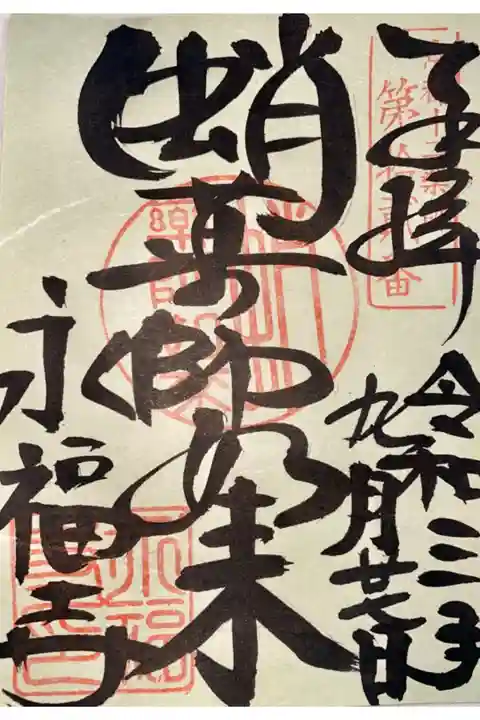 奉拝
令和三年
九月廿七日
蛸薬師如来
永福寺
第拾弐番